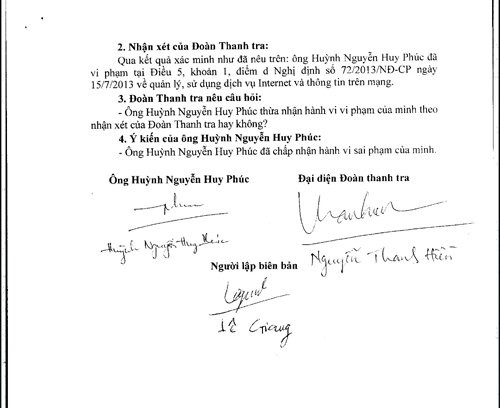 2. Nhận xét của Đoàn Thanh tra:
Qua kết quả xác minh như đã nêu trên: ông Huỳnh Nguyễn Huy Phúc đã
vi phạm tại Điều 5, khoản 1, điểm d Nghị định số 72/2013/NĐ-CP ngày
15/7/2013 về quản lý, sử dụng dịch vụ Internet và thông tin trên mạng.
3. Đoàn Thanh tra nêu câu hỏi:
- Ông Huỳnh Nguyễn Huy Phúc thừa nhận hành vi vi phạm của mình theo
nhận xét của Đoàn Thanh tra hay không?
4. Ý kiến của ông Huỳnh Nguyễn Huy Phúc:
- Ông Huỳnh Nguyễn Huy Phúc đã chấp nhận hành vi sai phạm của mình.
Ông Huỳnh Nguyễn Huy Phúc
Đại diện Đoàn thanh tra
Huỳnh Nguyễn Huy Phúc
Nguyễn Thanh Hiền
Người lập biên bản
Lê Giang